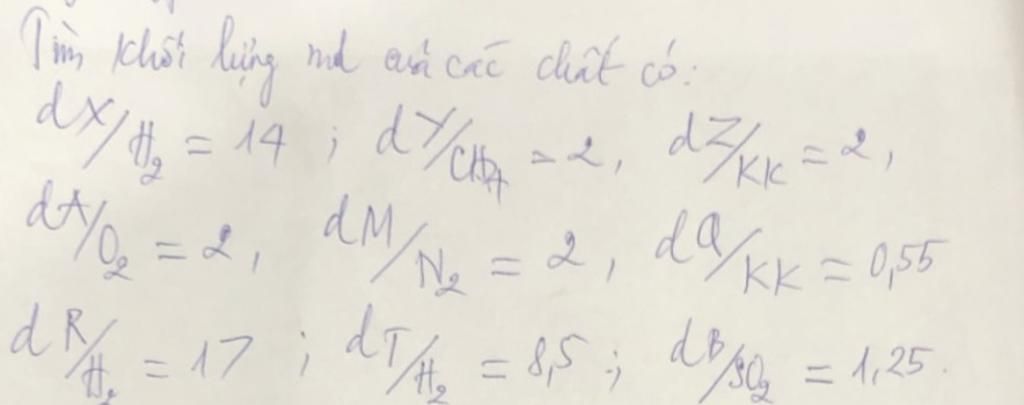 Tìm khối lượng mol của các chất có:
dX/H₂ = 14 ; dY/CH₄ = 2, dZ/KK = 2,
dA/O₂ = 2, dM/N₂ = 2, dQ/KK = 0,55
dR/H₂ = 17 ; dT/H₂ = 8,5 ; dB/SO₂ = 1,25.